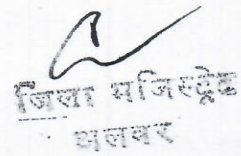 जिला मजिस्ट्रेट
अलवर